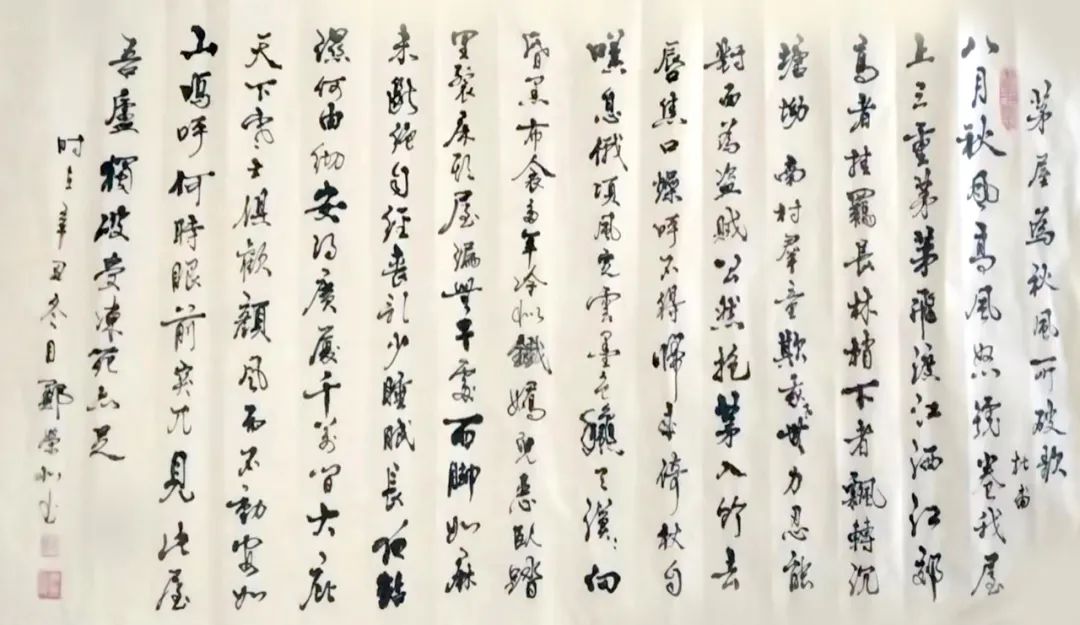 茅屋為秋風所破歌
杜甫
八月秋風高風怒號卷我屋
上三重茅茅飛渡江洒江郊
高者挂罥長林梢下者飄轉沉
塘坳南村羣童欺我老無力忍能
對面為盜賊公然抱茅入竹去
唇焦口燥呼不得歸來倚杖自
嘆息俄頃風定雲墨色秋天漠漠向
昏黑布衾多年冷似鐵嬌兒惡臥踏
里裂床頭屋漏無干處雨脚如麻
未斷絕自經喪亂少睡眠長夜沾
濕何由徹安得廣廈千萬間大庇
天下寒士俱歡顏風雨不動安如
山嗚呼何時眼前突兀見此屋
吾廬獨破受凍死亦足
时在辛丑冬月鄭榮